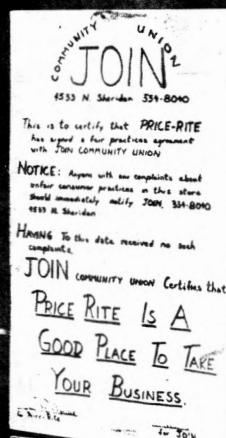 COMMUNITY UNION
JOIN
4533 N. Sheridan 334-8040
This is to certify that PRICE-RITE
has signed a fair practices agreement
with JOIN COMMUNITY UNION
NOTICE: Anyone with any complaints about
unfair consumer practices in this store
should immediately notify JOIN, 334-8040
4533 N. Sheridan
HAVING To this date received no such
complaints,
JOIN COMMUNITY UNION Certifies that
PRICE RITE IS A
GOOD PLACE TO TAKE
YOUR BUSINESS.
for JOIN